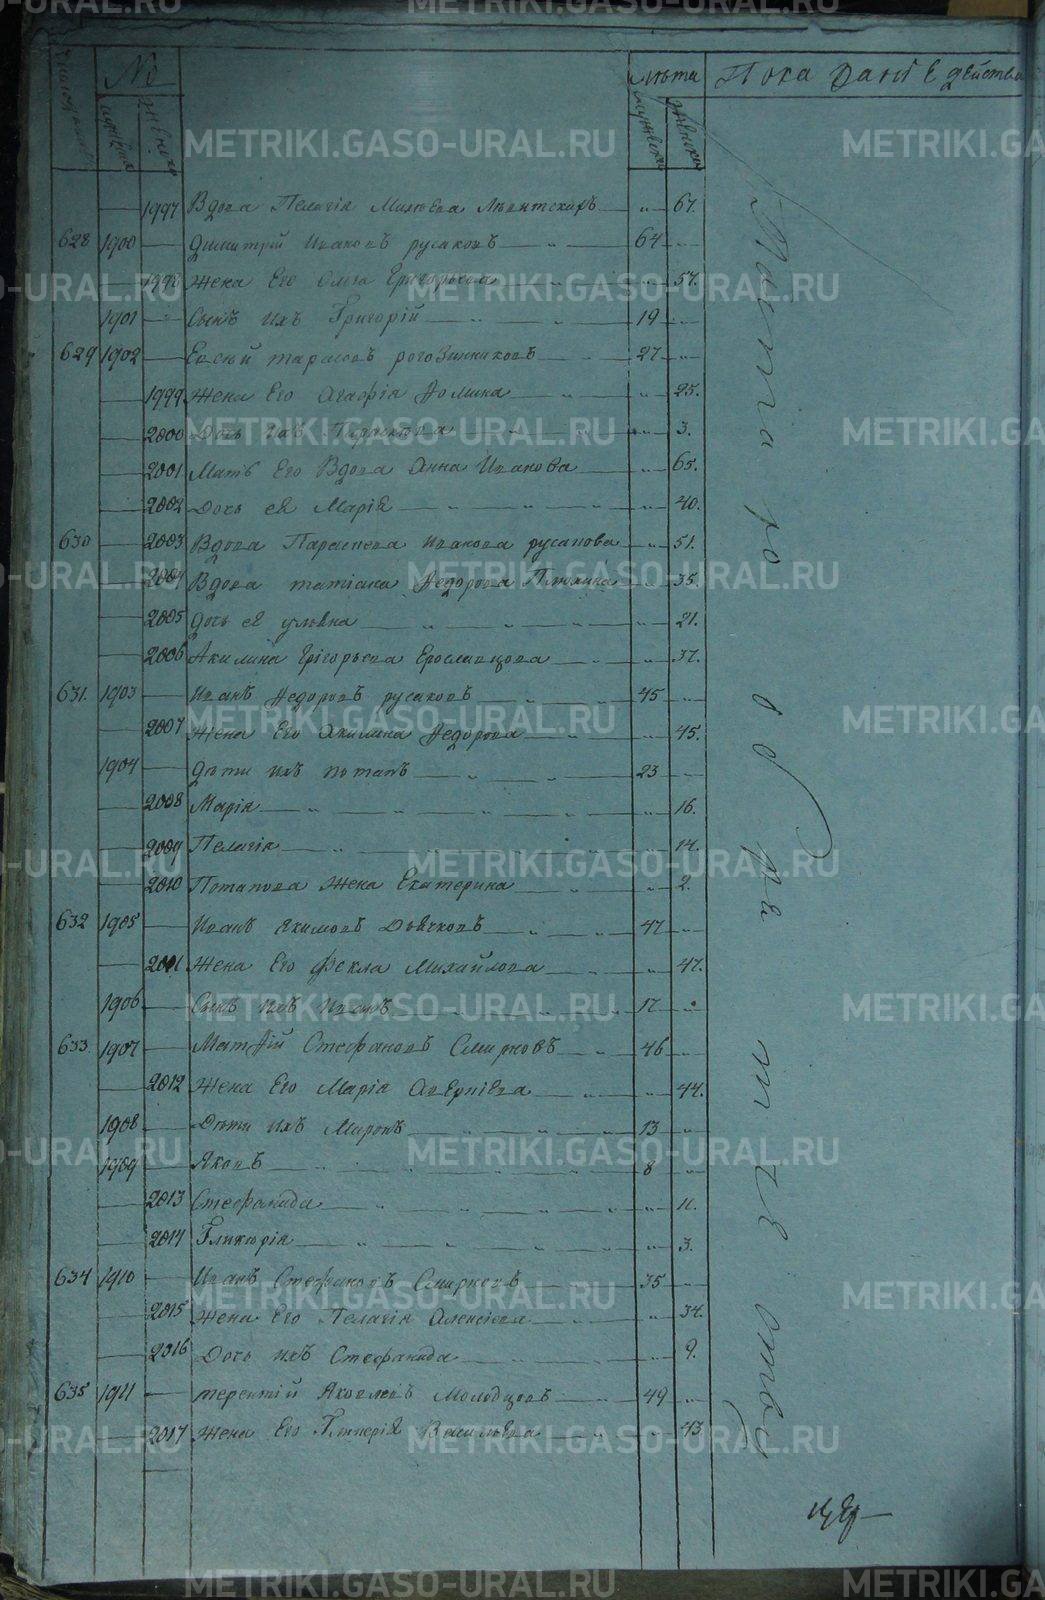 №
Лѣта
Показаніе действа
1997 Вдова Пелагія 67.
628 1900 Димитрій Ивановъ русаковъ 64
1998 Жена Его Григорьева 57.
1901 Сынъ ихъ Григорій 19
629 1902 Евсѣй тарасовъ рогозинниковъ 27
1999 Жена Его Агафія Фомина 25.
2000 Дочь ихъ 3.
2001 Мать Его Вдова Анна Иванова 65.
2002 Дочь ея Марія 40.
630 2003 Вдова Параскева Иванова русакова 51.
2004 Вдова татіана Федорова 35.
2005 Дочь ея ульяна 21.
2006 Акилина Григорьева Ерославцова 37.
631 1903 Иванъ Федоровъ русаковъ 45
2007 Жена Его Акилина Федорова 45.
1904 Дѣти ихъ потапъ 23
2008 Марія 16.
2009 Пелагія 14.
2010 Потапова Жена Екатерина 2.
632 1905 Иванъ Якимовъ Дьячковъ 47
2011 Жена Его Фекла Михайлова 47.
1906 Сынъ ихъ Иванъ 17
633 1907 Матфій Стефановъ Смирновъ 46
2012 Жена Его Марія Аверніева 44.
1908 Дѣти ихъ Миронъ 13
1909 Яковъ 8
2013 Стефанида 11.
2014 Гликюрія 3.
634 1910 Иванъ Стефановъ Смирновъ 35
2015 Жена Его Пелагія Алексіева 34.
2016 Дочь ихъ Стефанида 9.
635 1911 терентій Яковлевъ Молодцовъ 49
2017 Жена Его Васильева 43
METRIKI.GASO-URAL.RU